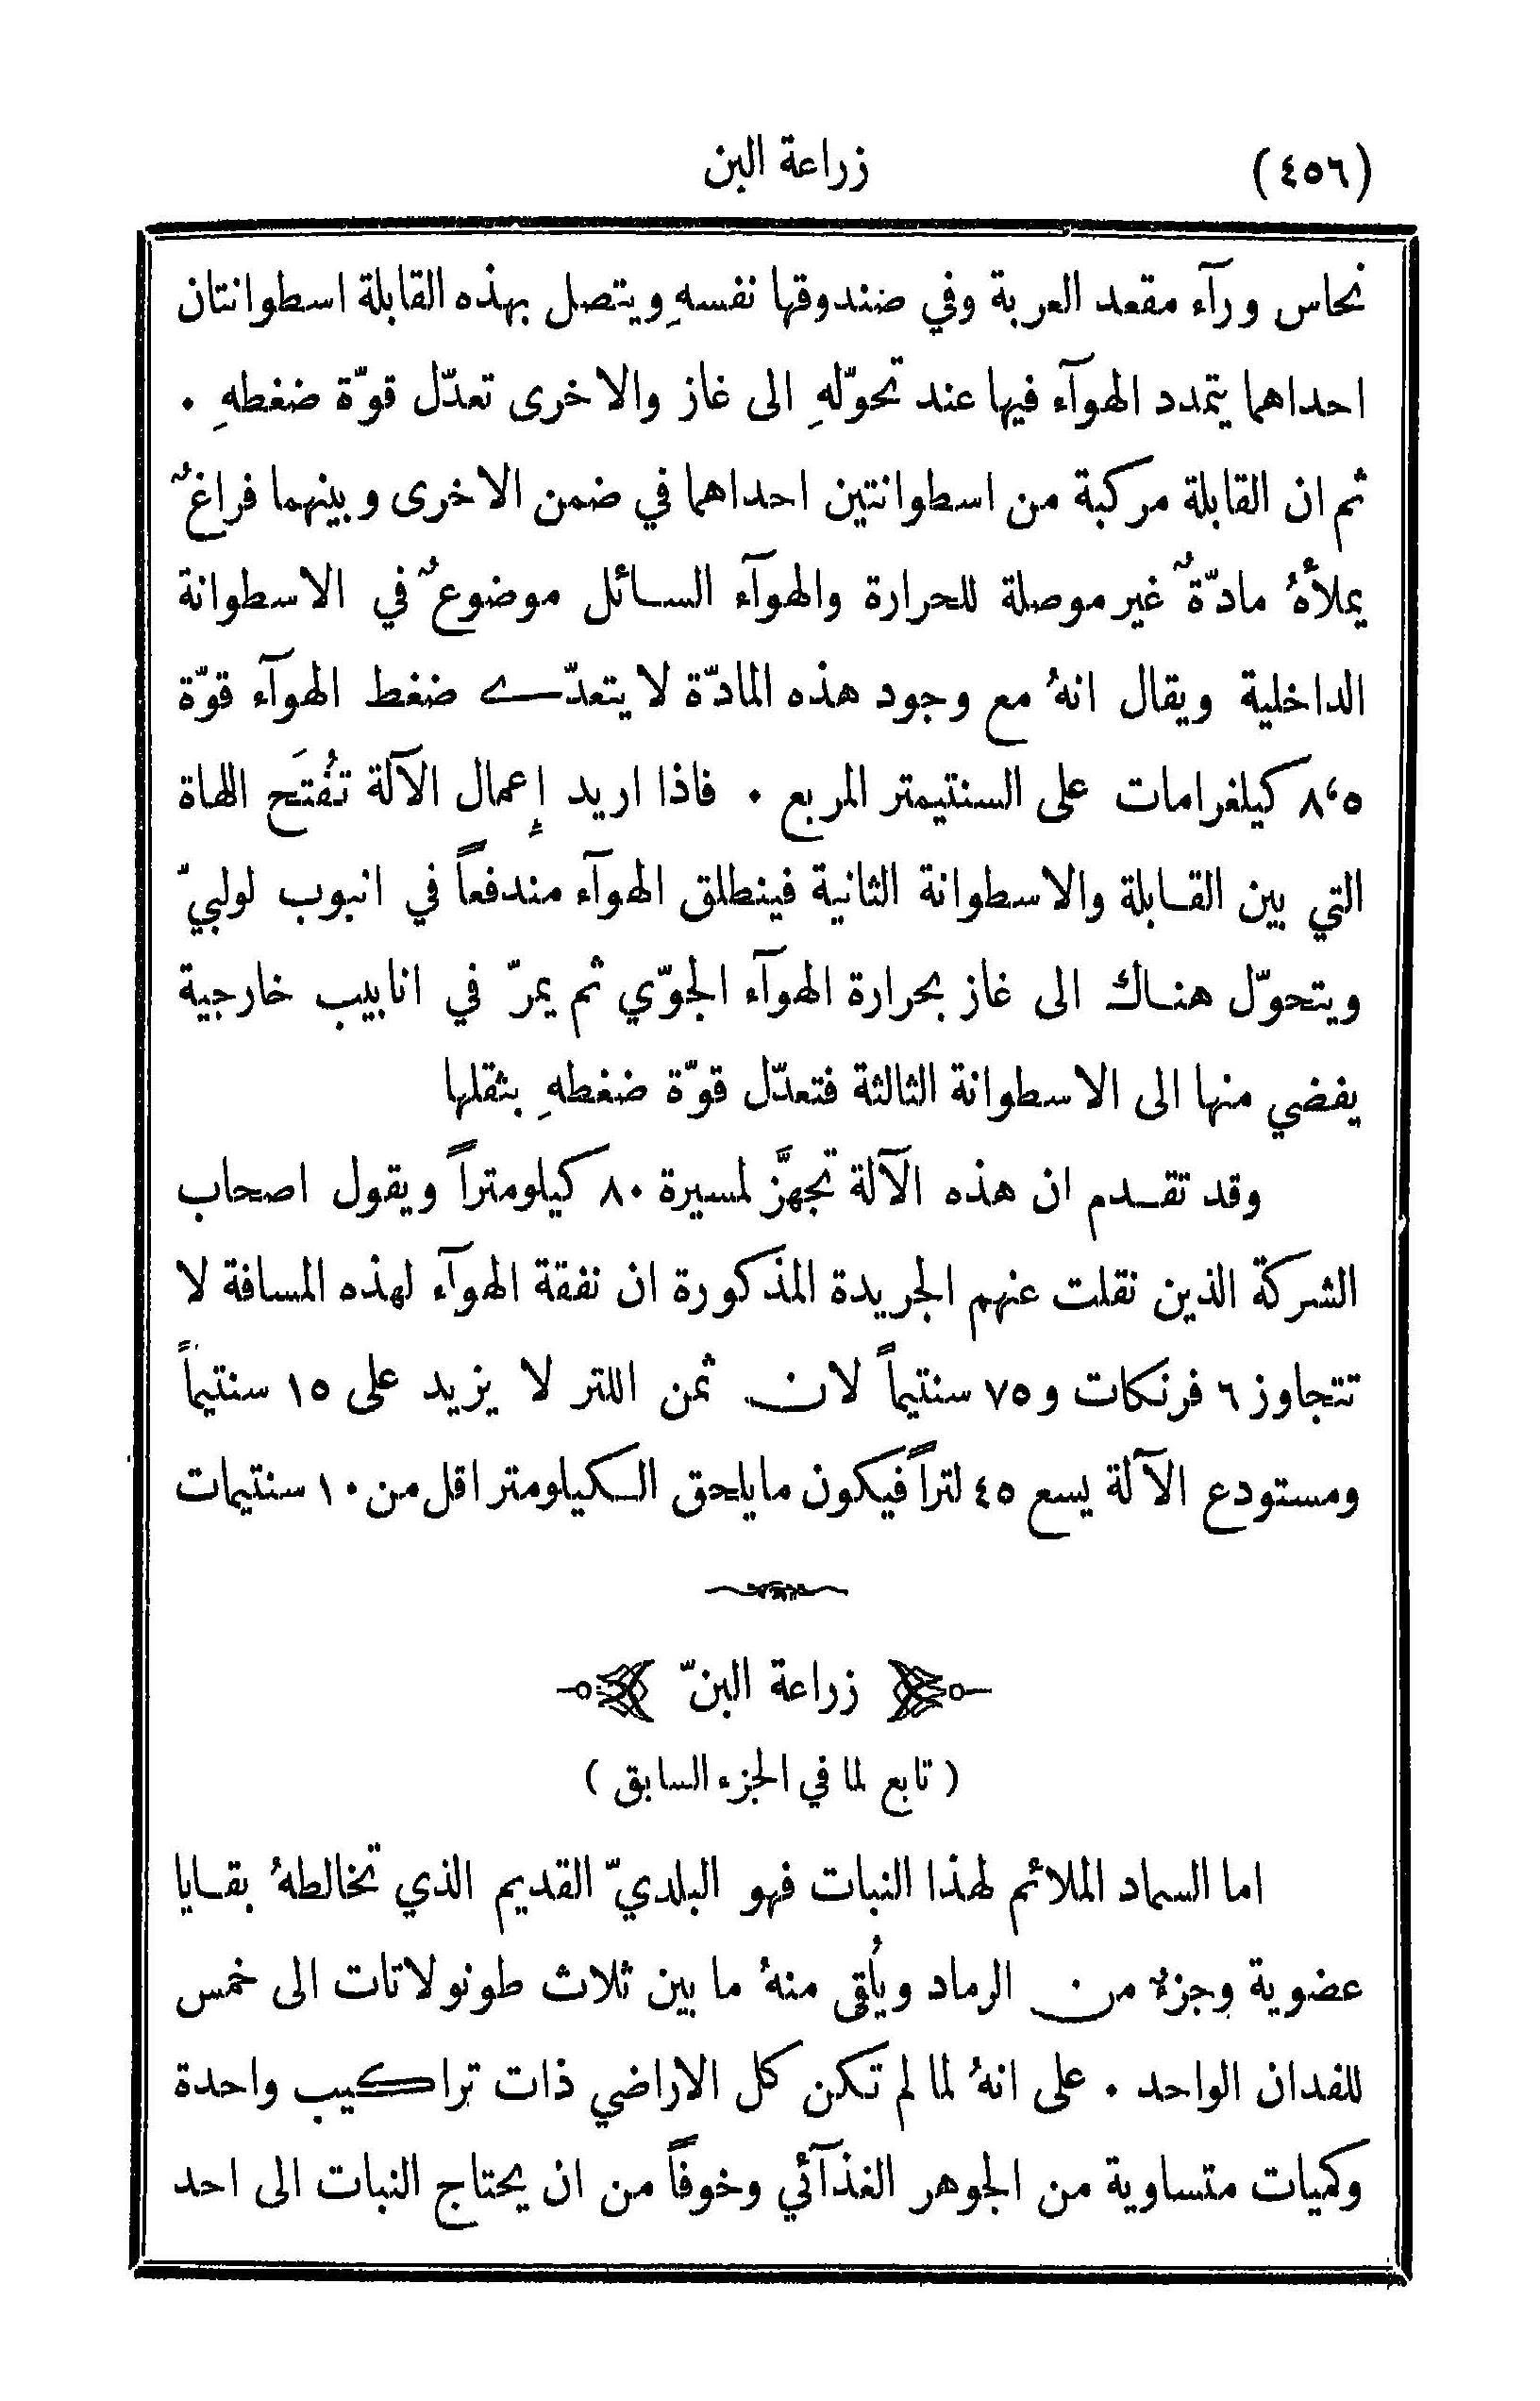 (٤٥٦) زراعة البن
نحاس ورآء مقعد العربة وفي صندوقها نفسهِ ويتصل بهذه القابلة اسطوانتان
احداهما يتمدد الهوآء فيها عند تحوّلهِ الى غاز والاخرى تعدّل قوّة ضغطهِ ٠
ثم ان القابلة مركبة من اسطوانتين احداهما في ضمن الاخرى وبينهما فراغٌ
يملأهُ مادّةٌ غير موصلة للحرارة والهوآء السائل موضوعٌ في الاسطوانة
الداخلية ويقال انهُ مع وجود هذه المادّة لا يتعدّى ضغط الهوآء قوّة
٨٬٥ كيلغرامات على السنتيمتر المربع ٠ فاذا اريد إعمال الآلة تُفتَح اللهاة
التي بين القابلة والاسطوانة الثانية فينطلق الهوآء مندفعاً في انبوب لولبيّ
ويتحوّل هناك الى غاز بحرارة الهوآء الجوّي ثم يمرّ في انابيب خارجية
يفضي منها الى الاسطوانة الثالثة فتعدّل قوّة ضغطهِ بثقلها
وقد تقدم ان هذه الآلة تجهَّز لمسيرة ٨٠ كيلومتراً ويقول اصحاب
الشركة الذين نقلت عنهم الجريدة المذكورة ان نفقة الهوآء لهذه المسافة لا
تتجاوز ٦ فرنكات و٧٥ سنتيماً لان ثمن اللتر لا يزيد على ١٥ سنتيماً
ومستودع الآلة يسع ٤٥ لتراً فيكون ما يلحق الكيلومتر اقل من ١٠ سنتيمات
زراعة البنّ
( تابع لما في الجزء السابق )
اما السماد الملائم لهذا النبات فهو البلديّ القديم الذي تخالطهُ بقايا
عضوية وجزءٌ من الرماد ويُلقى منهُ ما بين ثلاث طونولاتات الى خمس
للفدان الواحد ٠ على انهُ لما لم تكن كل الاراضي ذات تراكيب واحدة
وكميات متساوية من الجوهر الغذآئي وخوفاً من ان يحتاج النبات الى احد